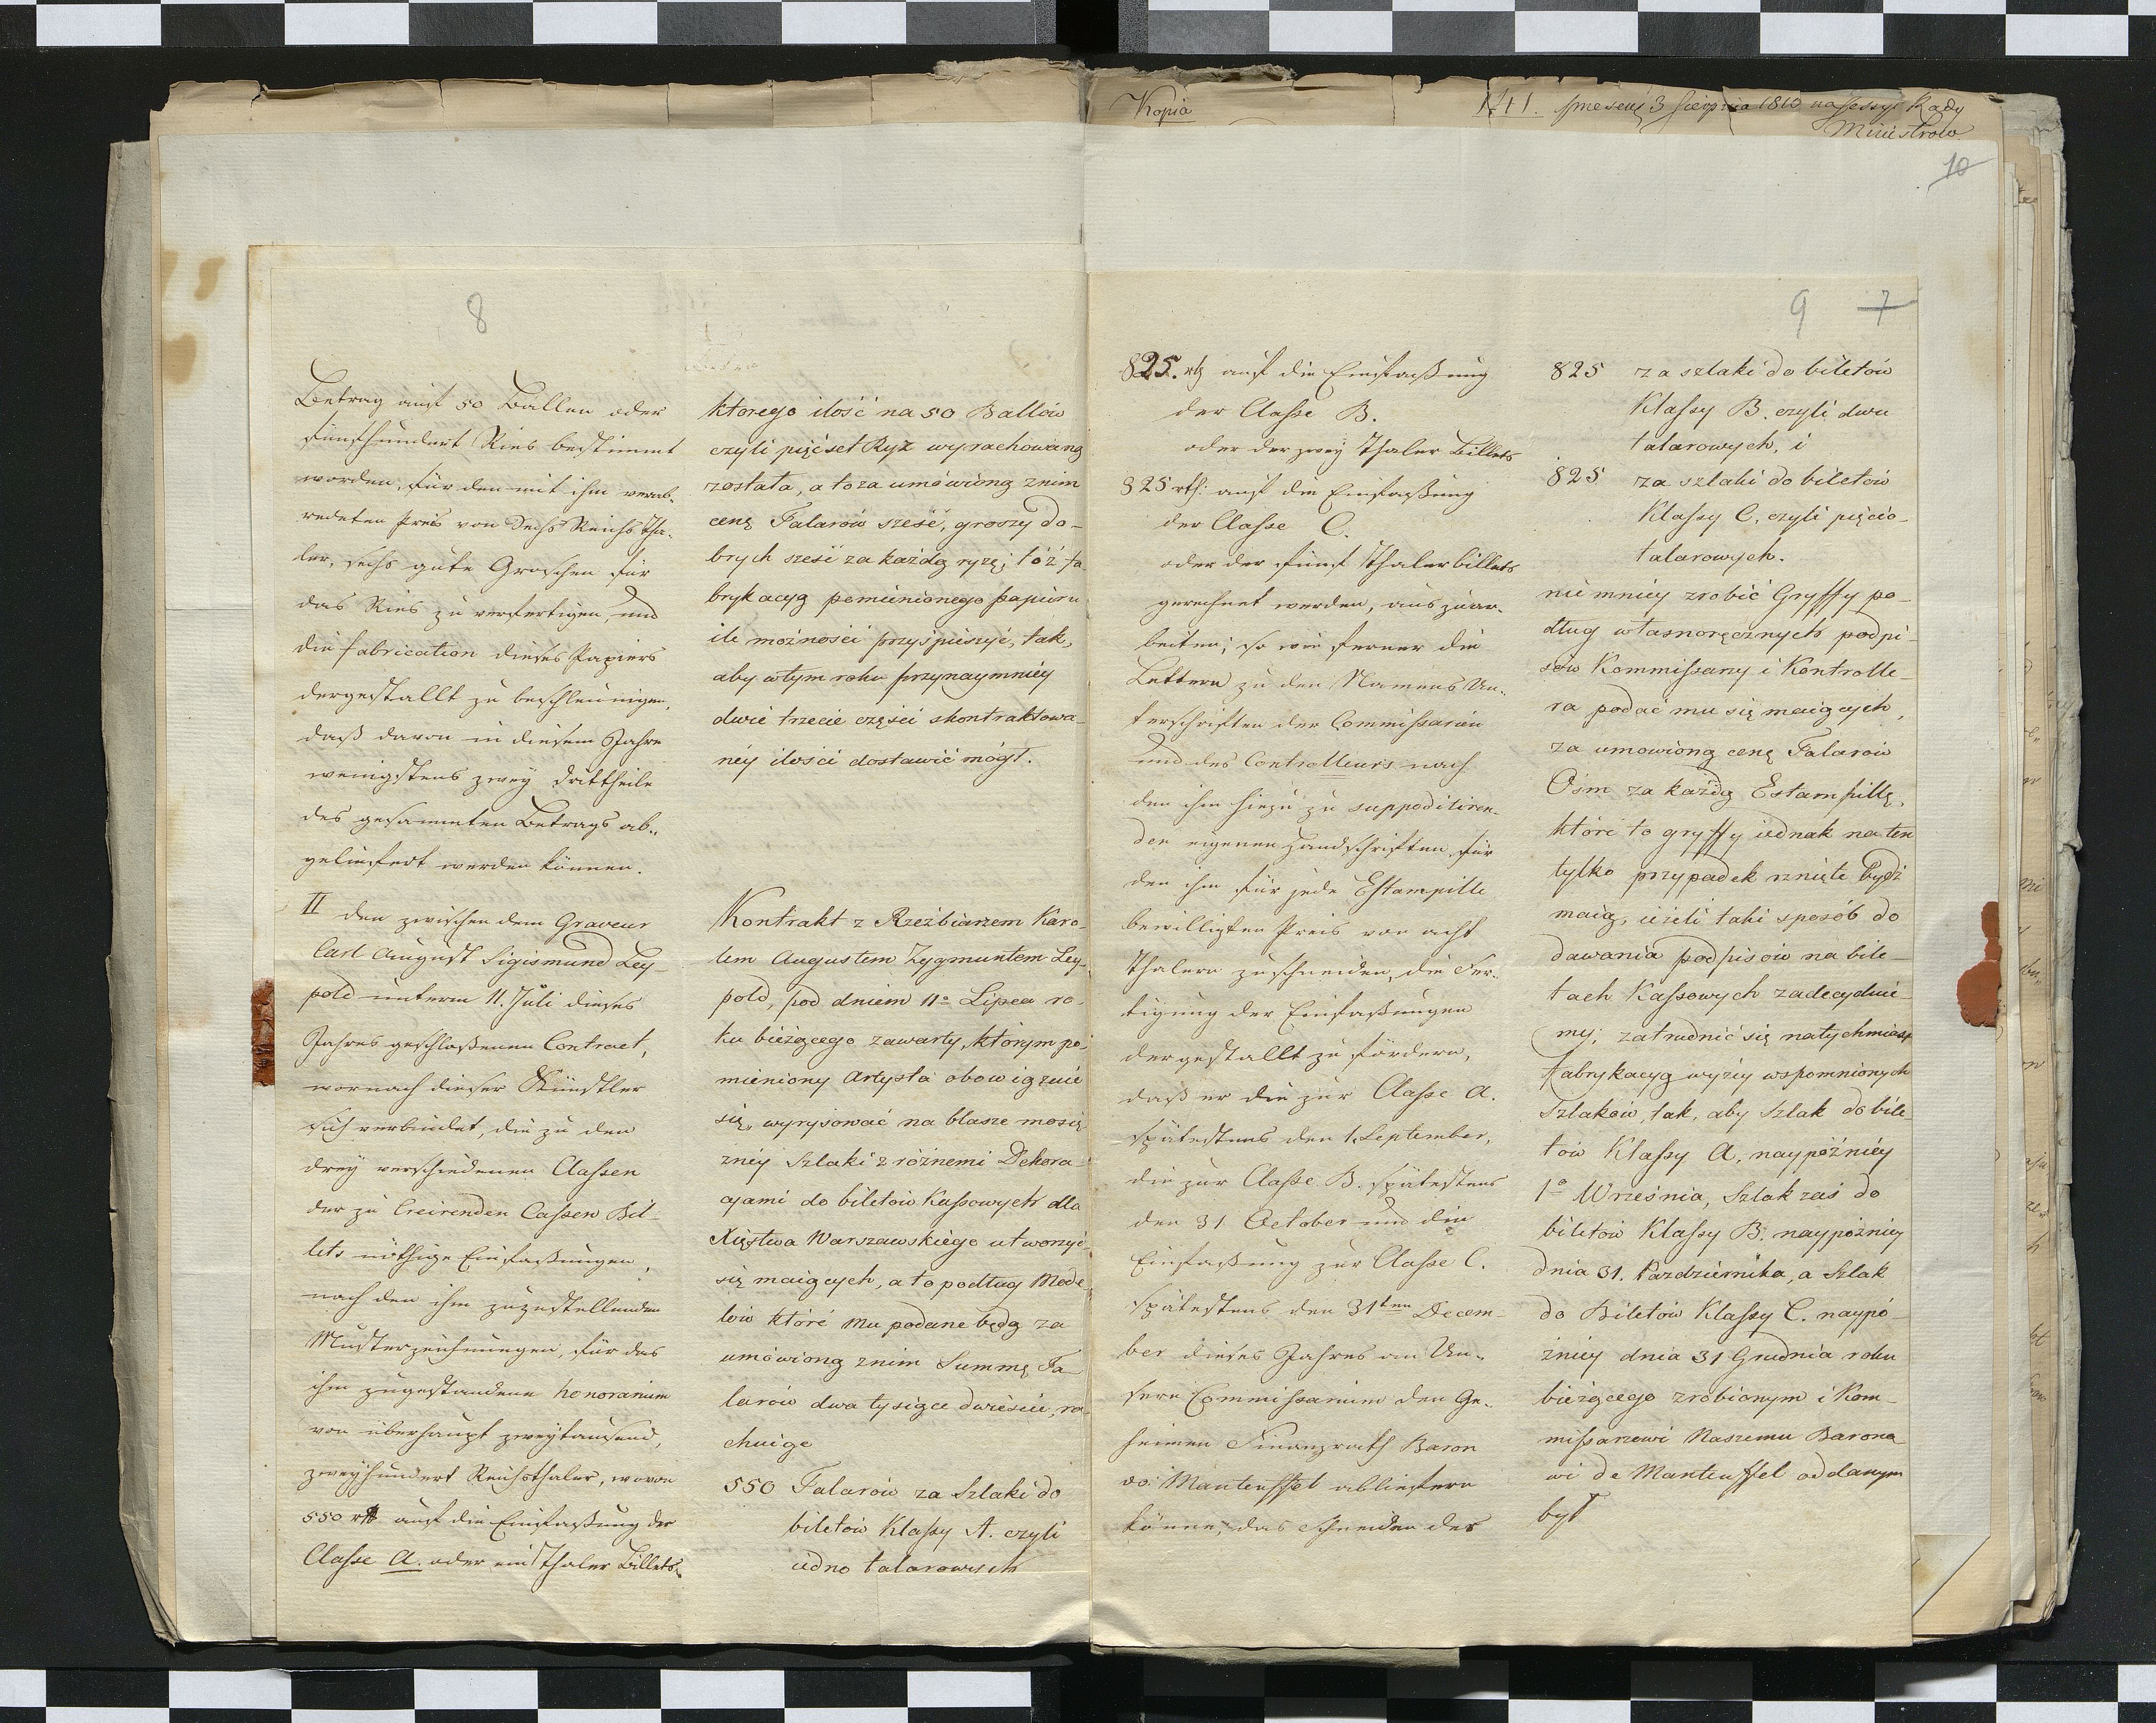 Kopia
141. wnesiony 3 Sierpnia 1810 na Sessyi Rady
Ministrow
10
8
Betrag auf 50 Ballen oder
fünfhundert Ries bestimmt
worden, für den mit ihm verab-
redeten Preis von Sechs Reichs Tha-
ler, sechs gute Groschen für
das Ries zu verfertigen, und
die fabrication dieses Papiers
dergestallt zu beschleunigen,
daß davon in diesem Jahre
wenigstens zwey Drittheile
des gesammten Betrags ab-
geliefert werden können.
II den zwischen dem Graveur
Carl August Sigismund Ley-
pold unterm 11. Juli dieses
Jahres geschloßenen Contract,
wornach dieser Künstler
sich verbindet, die zu den
drey verschiedenen Classen
der zu Creirenden Cassen Bil-
lets nöthige Einfaßungen,
nach den ihm zuzustellenden
Musterzeichnungen, für das
ihm zugestandene honorarium
von überhaupt zweytausend,
zweyhundert Reichsthaler, wovon
550 rth auf die Einfaßung der
Classe A. oder ein Thaler Billets,
ktorego ilość na 50 Ballów
czyli pięćset Ryz wyrachowaną
została, a to za umówioną znim
cenę Talarów sześć, groszy do-
brych sześć za każdą ryzę; tóż fa-
brykacyą pomienionego papieru
ile możności przyśpieszyć, tak,
aby w tym roku przynaymniéy
dwie trzecie części skontraktowa-
néy ilości dostawić mógł.
Kontrakt z Rzeźbiarzem Karo-
lem Augustem Zygmuntem Ley-
pold, pod dniem 11º Lipca ro-
ku bieżącego zawarty, którym po-
mieniony Artysta obowiązuie
się, wyrysować na blasze mosię
znéy Szlaki z różnemi Dekora-
cyami do biletów Kassowych dla
Xięstwa Warszawskiego utworzyć
się maiących, a to podług Mode-
lów które mu podane będą za
umówioną znim Summę Ta-
larów dwa tysiące dwieście, ra-
chuiąc
550 Talarów za Szlaki do
biletów Klassy A. czyli
iedno talarowych
9 7
825. rth auf die Einfaßung
der Classe B.
oder der zwey Thaler Billets
825 rth: auf die Einfaßung
der Classe C.
oder der fünf Thalerbillets
gerechnet werden, auszuar-
beiten; so wie ferner die
Lettern zu den Namens Un-
terschriften der Commissarien
und des Controlleurs nach
den ihm hiezu zu suppeditiren-
den eigenen Handschriften, für
den ihm für jede Estampille
bewilligten Preis von acht
Thalern zuschneiden, die Fer-
tigung der Einfaßungen
dergestallt zu fördern,
daß er die zur Classe A.
spätestens den 1. September,
die zur Classe B. spätestens
den 31 October und die
Einfaßung zur Classe C.
spätestens den 31ten Decem-
ber dieses Jahres an Un-
sern Commissarium den Ge-
heimen Finanzrath Baron
vo: Manteuffel abliefern
könne, das Schneiden der
825 za szlaki do biletów
Klassy B. czyli dwu
talarowych, i
825 za szlaki do biletów
Klassy C. czyli pięcio-
talarowych.
nie mniéy zrobić Gryffy po-
dług własnoręcznych podpi-
sów Kommissarzy i Kontrolle-
ra podać mu się maiących,
za umowioną cenę Talarów
Ośm za każdą Estampillę,
które to gryffy iednak na ten
tylko przypadek rznięte bydź
maią, ieżeli taki sposób do
dawania podpisów na bile-
tach Kassowych zadecydnie-
my; zatrudnić się natychmiast
fabrykacyą wyżéy wspomnionych
Szlaków, tak, aby Szlak do bile
tów Klassy A. naypóźniéy
1º Września, Szlak zaś do
biletów Klassy B. naypóźniéy
dnia 31. Pazdziernika, a Szlak
do Biletów Klassy C. naypó-
źniéy dnia 31 Grudnia roku
bieżącego zrobionym i Kom-
missarzowi Naszemu Barono
wi de Manteuffel oddanym
był